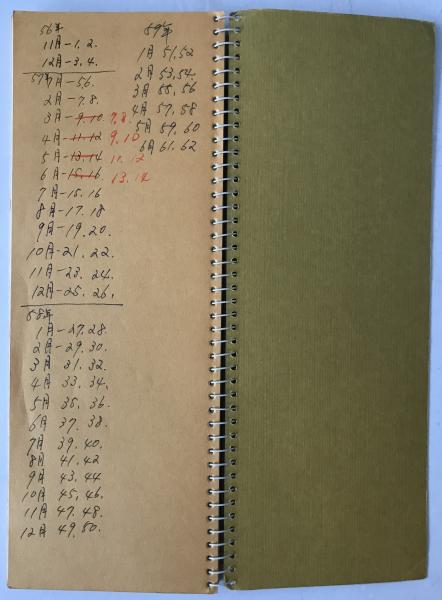 56年
11月-1.2.
12月-3.4.
57年
1月-5.6.
2月-7.8.
3月-9.10 7,8.
4月-11.12 9.10
5月-13.14 11.12
6月-15.16 13.14
7月-15.16
8月-17.18
9月-19.20.
10月-21.22.
11月-23.24.
12月-25.26.
58年
1月-27.28.
2月-29.30.
3月 31.32.
4月 33.34.
5月 35.36.
6月 37.38.
7月 39.40.
8月 41.42
9月 43.44
10月 45.46.
11月 47.48.
12月 49.50.
59年
1月 51,52
2月 53,54.
3月 55,56
4月 57,58
5月 59,60
6月 61.62